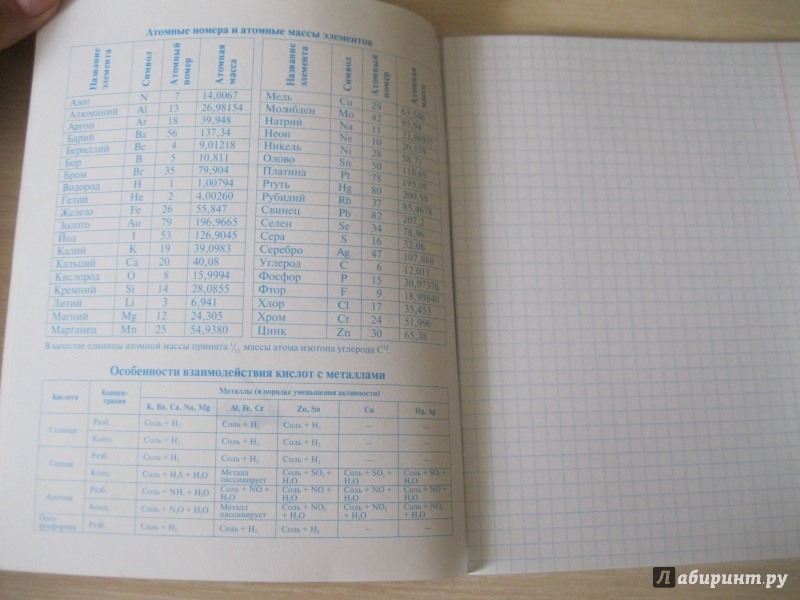 Атомные номера и атомные массы элементов
Название элемента Символ Атомный номер Атомная масса
Азот N 7 14,0067
Алюминий Al 13 26,98154
Аргон Ar 18 39,948
Барий Ba 56 137,34
Бериллий Be 4 9,01218
Бор B 5 10,811
Бром Br 35 79,904
Водород H 1 1,00794
Гелий He 2 4,00260
Железо Fe 26 55,847
Золото Au 79 196,9665
Йод I 53 126,9045
Калий K 19 39,0983
Кальций Ca 20 40,08
Кислород O 8 15,9994
Кремний Si 14 28,0855
Литий Li 3 6,941
Магний Mg 12 24,305
Марганец Mn 25 54,9380
Название элемента Символ Атомный номер Атомная масса
Медь Cu 29 63,546
Молибден Mo 42 95,94
Натрий Na 11
Неон Ne 10 20,179
Никель Ni 28 58,71
Олово Sn 50 118,69
Платина Pt 78 195,08
Ртуть Hg 80 200,59
Рубидий Rb 37 85,4678
Свинец Pb 82 207,2
Селен Se 34 78,96
Сера S 16 32,06
Серебро Ag 47 107,868
Углерод C 6 12,011
Фосфор P 15 30,97376
Фтор F 9 18,99840
Хлор Cl 17 35,453
Хром Cr 24 51,996
Цинк Zn 30 65,38
В качестве единицы атомной массы принята 1/12 массы атома изотопа углерода C¹².
Особенности взаимодействия кислот с металлами
Кислота Концентрация Металлы (в порядке уменьшения активности)
K, Ba, Ca, Na, Mg Al, Fe, Cr Zn, Sn Cu Hg, Ag
Соляная Разб. Соль + H₂ Соль + H₂ Соль + H₂ — —
Конц. Соль + H₂ Соль + H₂ Соль + H₂ — —
Серная Разб. Соль + H₂ Соль + H₂ Соль + H₂ — —
Конц. Соль + H₂S + H₂O Металл пассивирует Соль + SO₂ + H₂O Соль + SO₂ + H₂O Соль + SO₂ + H₂O
Азотная Разб. Соль + NH₃ + H₂O Соль + NO + H₂O Соль + NO + H₂O Соль + NO + H₂O Соль + NO + H₂O
Конц. Соль + N₂O + H₂O Металл пассивирует Соль + NO₂ + H₂O Соль + NO₂ + H₂O Соль + NO₂ + H₂O
Ортофосфорная Разб. Соль + H₂ Соль + H₂ Соль + H₂ — —
Лабиринт.ру